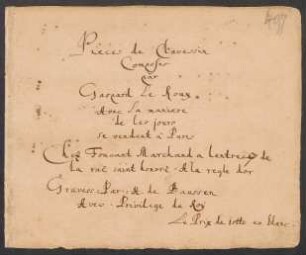 Pieces de Clavessin
Composez
par
Gaspard Le Roux.
Avec la maniere
de les jouer
se vendent à Paris
Chez Foucaut Marchand a l'entrée de
la rüe saint honoré. A la regle d'or
Gravées Par. de Baussen
Avec Privilege du Roy
Le Prix de sotte en blanc.